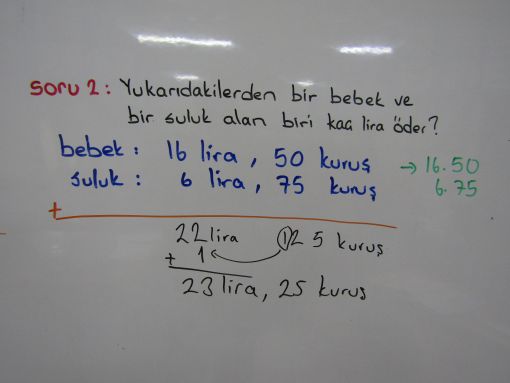 Soru 2: Yukarıdakilerden bir bebek ve
bir suluk alan biri kaç lira öder?
bebek: 16 lira, 50 kuruş → 16.50
suluk: 6 lira, 75 kuruş 6.75
+
22 lira 125 kuruş
+ 1
23 lira, 25 kuruş